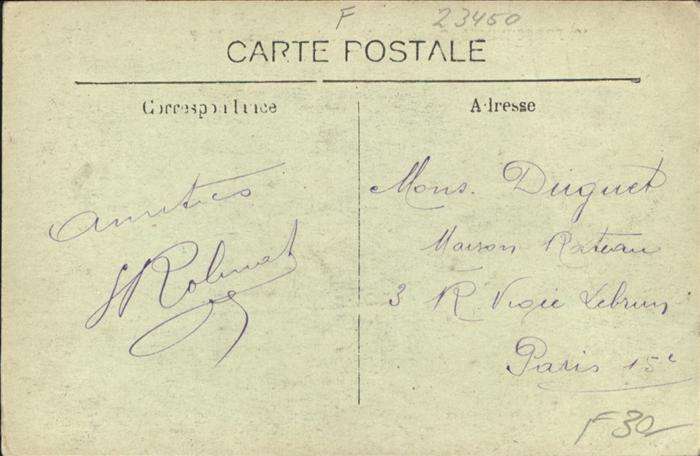 F 23450
CARTE POSTALE
Correspondance
Amitiés
Adresse
Mons. Duguet
Maison Rateau
3 R. Vigie Lebrun
Paris 15e
F 30